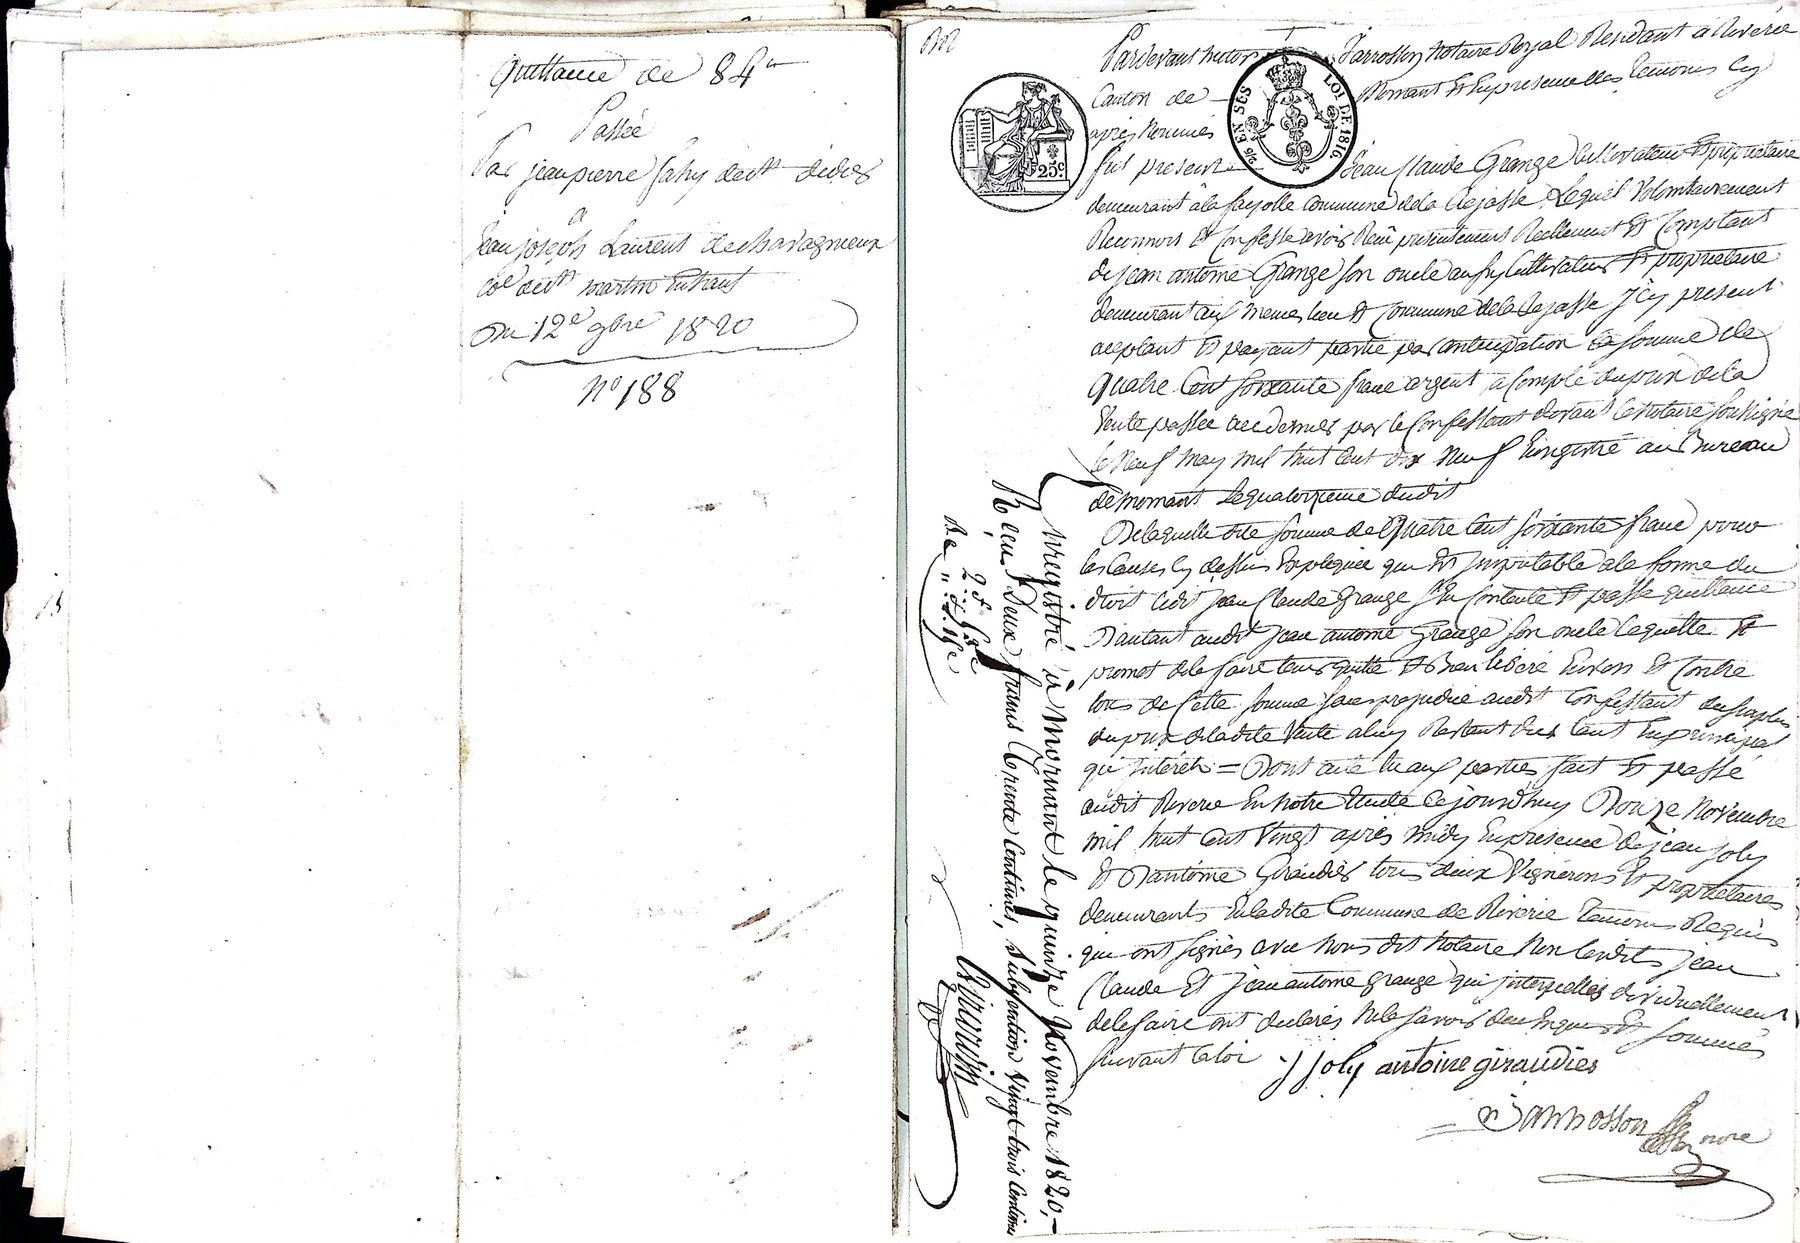 Quittance de 84
Passée
Par jean pierre
à
jean joseph Laurent de chavagneux
Du 12e 9bre 1820
N° 188
25c
EN SUS
LOI DE 1816
Pardevant Notaire Royal Residant à Riverie
Canton de Mornant Et En presence des temoins cy
après Nommés
fut present Jean Claude Grange Cultivateur Et proprietaire
demeurant à la fayolle Commune de la Lequel Volontairement
Reconnois Et Confesse avoir Recu presentement Reellement Et Comptant
de jean antoine Grange son oncle aussy Cultivateur Et proprietaire
demeurant aux memes lieu Et Commune de la jcy present
acceptant Et payant partie par anticipation la somme de
Quatre Cent soixante franc argent à Compte du prix de la
Vente passée à ce dernier par le Confessant devant le Notaire soussigné
le Neuf may mil huit Cent dix Neuf Enregistré au Bureau
de mornant le quatorzieme dudit
De laquelle dite somme de Quatre Cent soixante franc pour
les Causes cy dessus Expliquée qui Est jmputable a la forme du
droit ledit jean Claude Grange s'en Contente Et passe quittance
D'autant audit jean antoine Grange son oncle laquelle Et
promet de le faire tenir quitte Et Bien libéré Envers Et Contre
tous de Cette somme sans prejudice audit Confessant du surplus
du prix de ladite Vente a luy Restant dus tant En principal
qu'interets = Dont acte lu aux parties fait Et passé
audit Riverie En notre Etude Ce jourd'huy Douze Novembre
mil huit Cent Vingt après midy En presence de jean joly
Et D'antoine Giraudier tous deux Vignerons Et proprietaires
demeurants En ladite Commune de Riverie temoins Requis
qui ont signés avec Nous dit Notaire Non lesdits jean
Claude Et jean antoine Grange qui jnterpellés
de le faire ont declarés Ne le savoir de ce Enquis Et sommés
suivant la loi
j joly antoine giraudier
Enregistré à Mornant le quinze Novembre 1820,
Reçu Deux francs trente Centimes, subvention Vingt trois Centimes